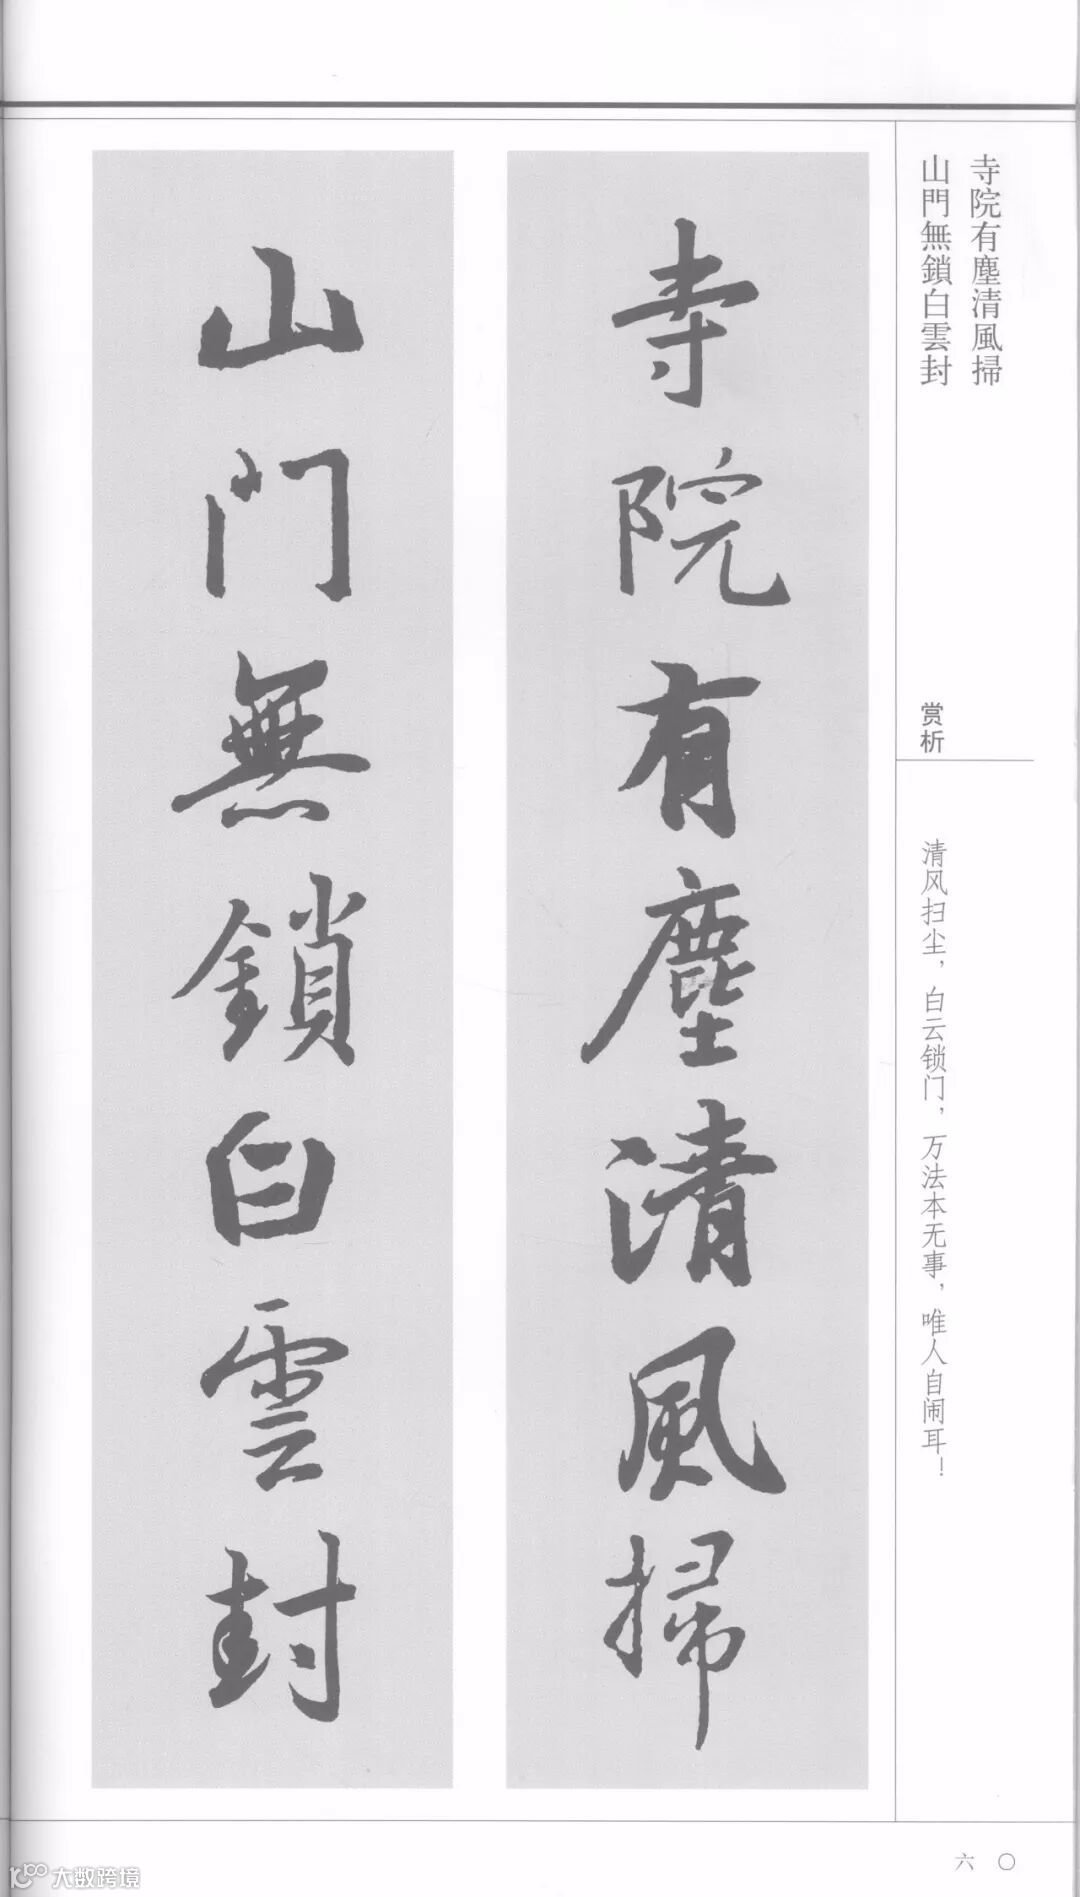 寺院有塵清風掃
山門無鎖白雲封
赏析
清风扫尘，白云锁门，万法本无事，唯人自闹耳！
寺院有塵清風掃
山門無鎖白雲封
六〇
大数跨境